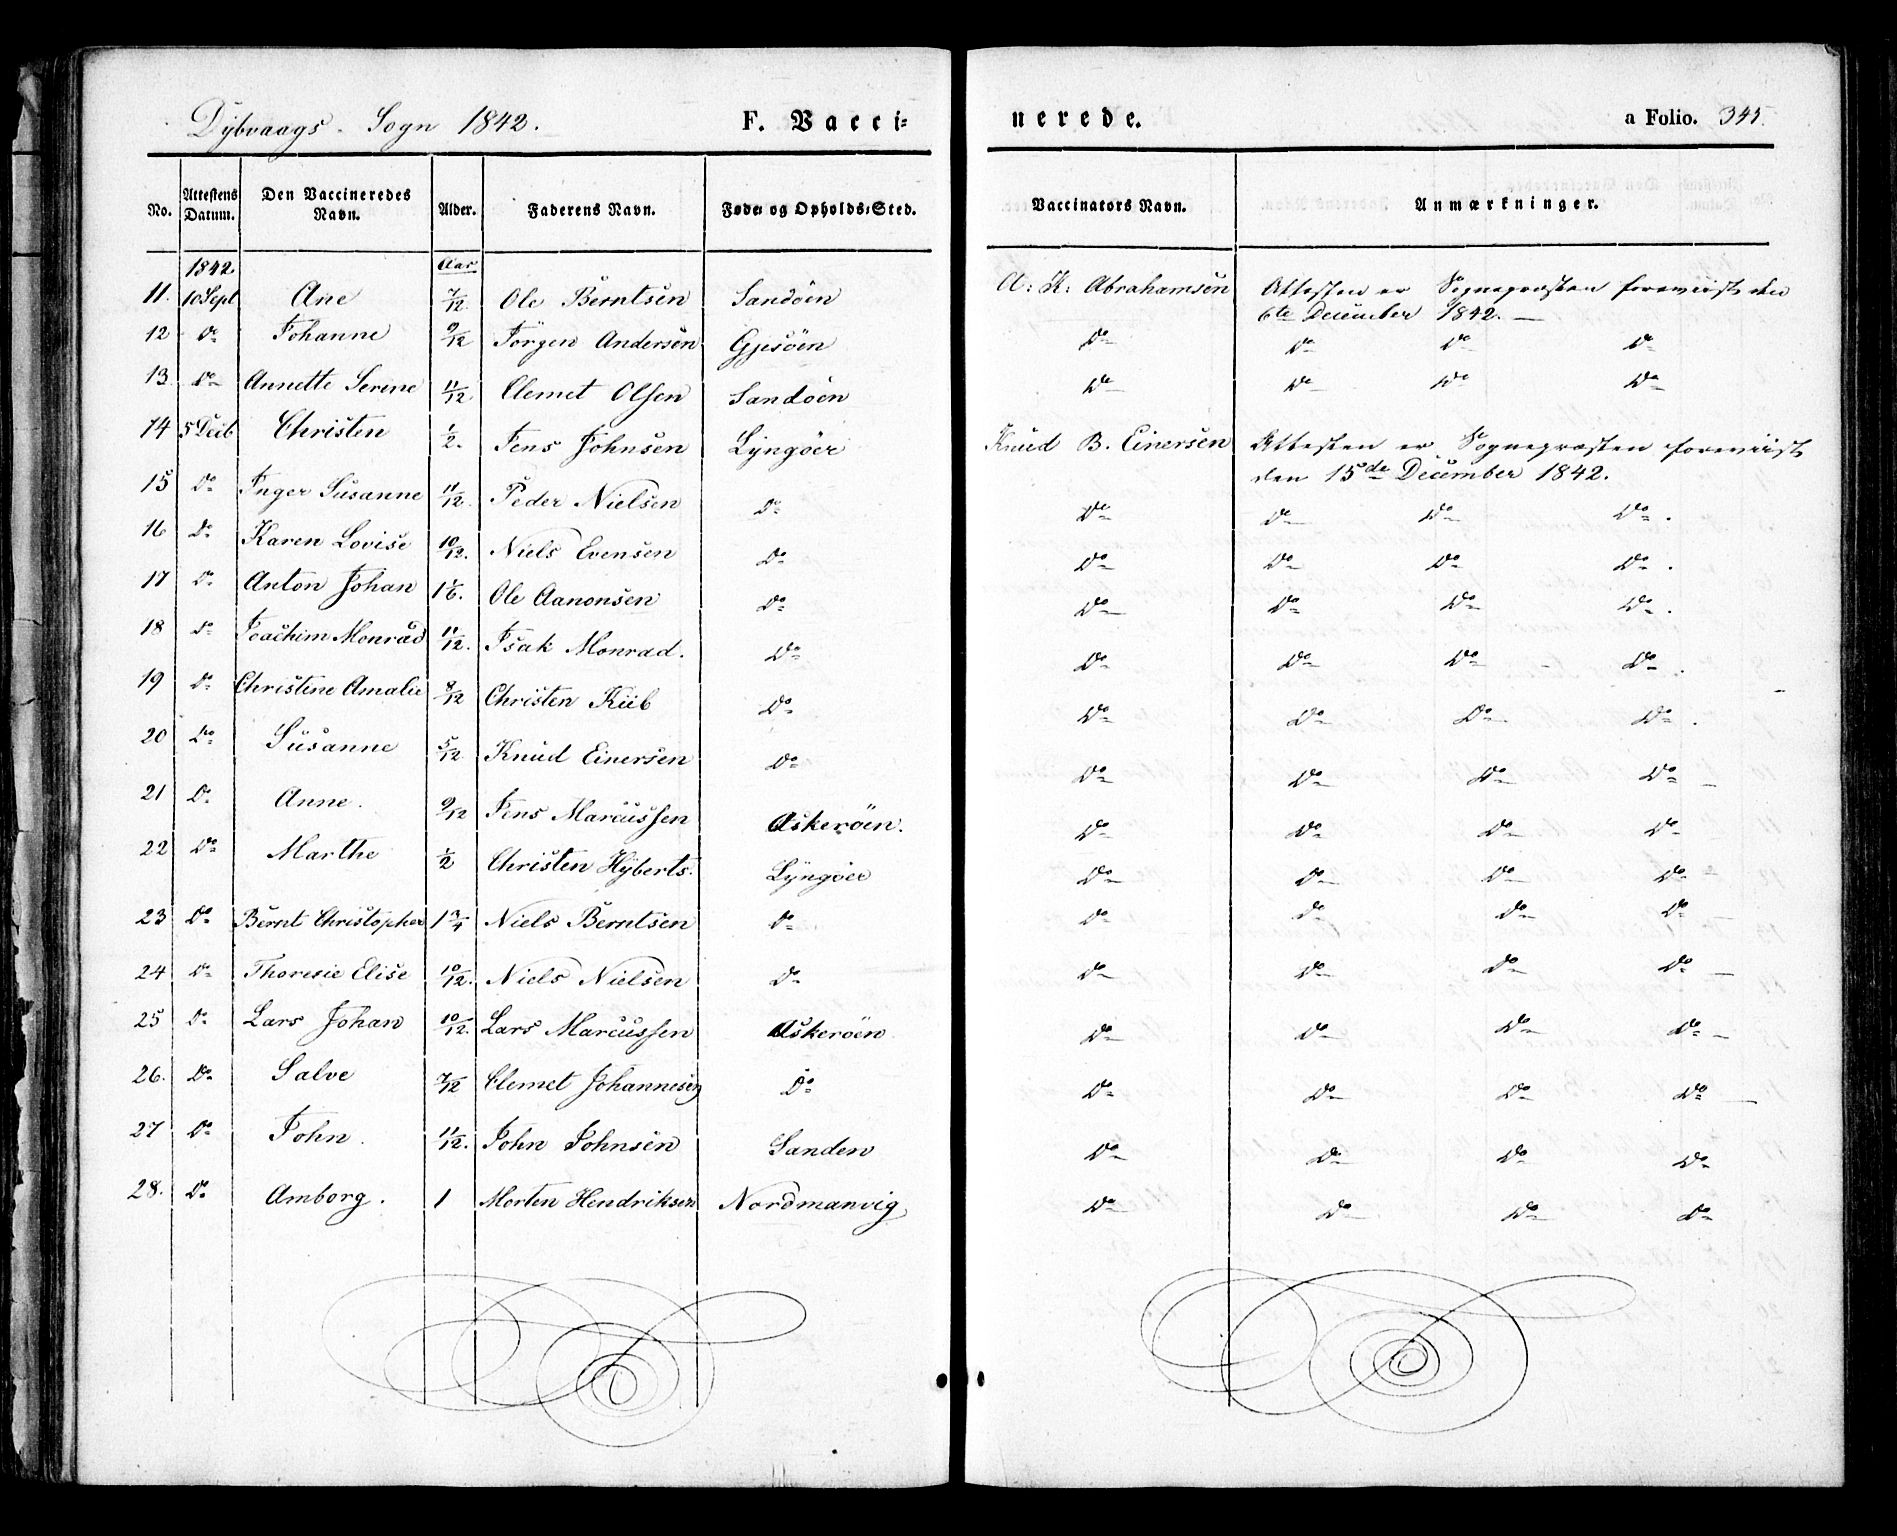 Dÿbvaags Sogn 1842. F. Vacci= nerede. a Folio. 345.
No. Attestens Datum. Den Vaccineredes Navn. Alder. Faderens Navn. Føde og Opholds-Sted. Vaccinators Navn. Anmærkninger.
1842. Aar
11. 10 Sept Ane 7/12 Ole Berntsen Sandöen A: K: Abrahamsen Attesten er Sognepræsten foreviist den
6te December 1842. —
12 Do Johanne 9/12 Jörgen Andersen Gjpsöen Do Do Do Do
13. Do Annette Serine 11/12 Clemet Olsen Sandöen Do Do Do Do
14 5 Decb Christen 1/2. Jens Johnsen Lÿngöer Knud B. Einersen Attesten er Sognepræsten foreviist
den 15de December 1842.
15 Do Inger Susanne 11/12. Peder Nielsen Do Do Do Do Do.
16 Do Karen Lovise 10/12. Niels Evensen Do Do Do Do Do.
17 Do Anton Johan Ole Aanonsen Do Do Do Do Do.
18 Do Joachim Monrad 11/12. Isak Monrad. Do Do Do Do Do.
19 Do Christine Amalie 8/12 Christen Kiib Do Do Do Do Do.
20 Do Susanne 5/12 Knud Einersen Do Do Do Do Do
21 Do Anne. 9/12 Jens Marcussen Askeröen. Do Do Do Do
22 Do Marthe 1/2 Christen Hÿberts. Lÿngöer Do Do Do Do
23 Do Bernt Christopher 1 3/4 Niels Berntsen Do Do Do Do Do
24 Do Thoresie Elise 10/12. Niels Nielsen Do Do Do Do Do
25 Do Lars Johan 10/12. Lars Marcussen Askeröen Do Do Do Do
26. Do Salve 7/12 Clemet Johannesen Do Do Do Do Do
27 Do John. 11/12. John Johnsen Sanden Do Do Do Do
28. Do Amborg. 1 Morten Hendriksen Nordmanvig Do Do Do Do